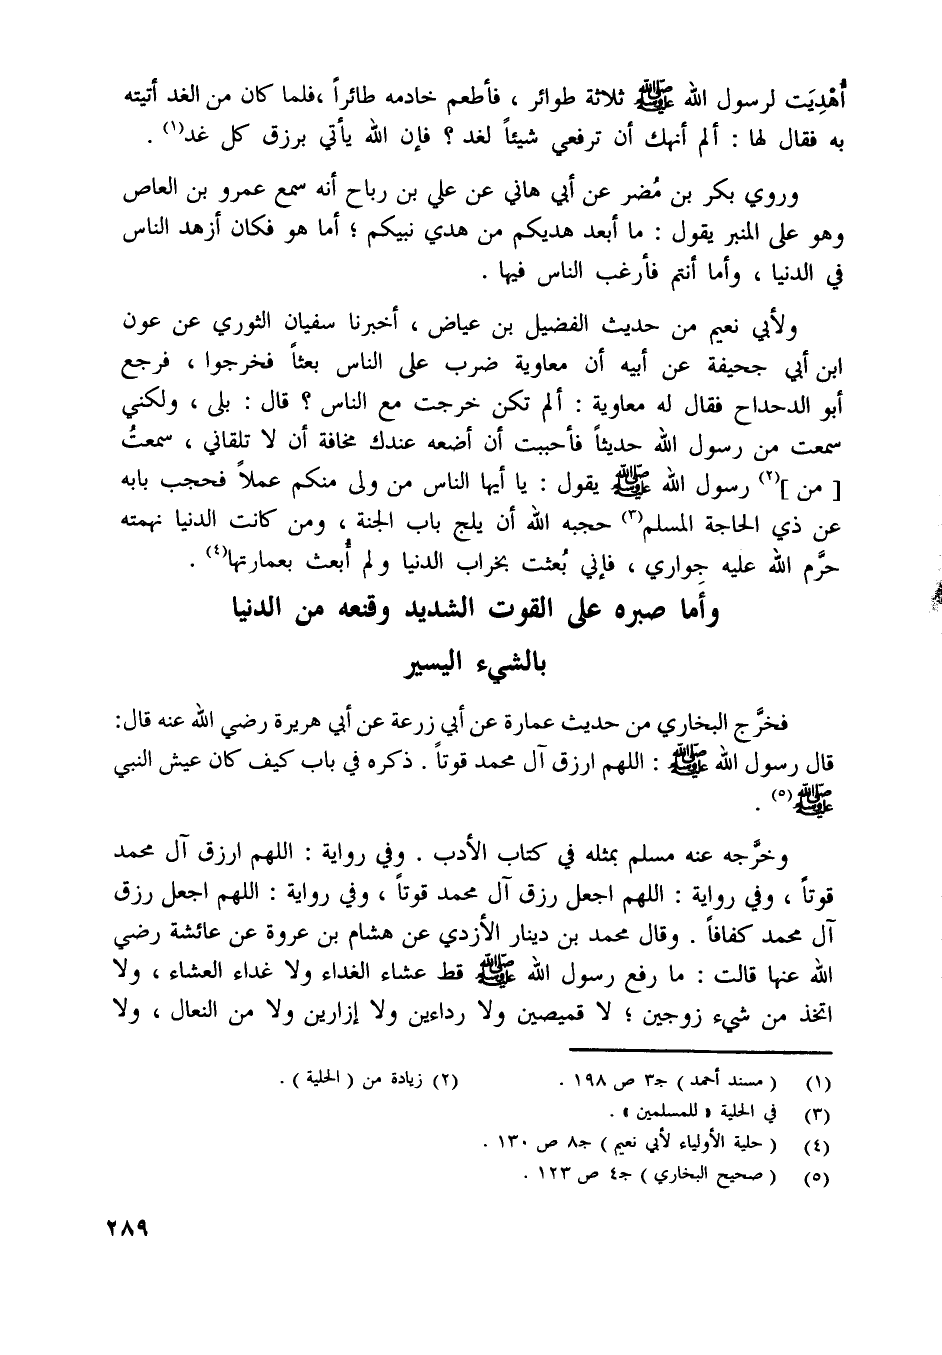 أُهْدِيَت لرسول الله ﷺ ثلاثة طوائر ، فأطعم خادمه طائراً ،فلما كان من الغد أتيته
به فقال لها : ألم أنهك أن ترفعي شيئاً لغد ؟ فإن الله يأتي برزق كل غد(١) .
وروي بكر بن مُضر عن أبي هاني عن علي بن رباح أنه سمع عمرو بن العاص
وهو على المنبر يقول : ما أبعد هديكم من هدي نبيكم ؛ أما هو فكان أزهد الناس
في الدنيا ، وأما أنتم فأرغب الناس فيها .
ولأبي نعيم من حديث الفضيل بن عياض ، أخبرنا سفيان الثوري عن عون
ابن أبي جحيفة عن أبيه أن معاوية ضرب على الناس بعثاً فخرجوا ، فرجع
أبو الدحداح فقال له معاوية : ألم تكن خرجت مع الناس ؟ قال : بلى ، ولكني
سمعت من رسول الله حديثاً فأحببت أن أضعه عندك مخافة أن لا تلقاني ، سمعتُ
[ من ](٢) رسول الله ﷺ يقول : يا أيها الناس من ولى منكم عملاً فحجب بابه
عن ذي الحاجة المسلم(٣) حجبه الله أن يلج باب الجنة ، ومن كانت الدنيا نهمته
حرَّم الله عليه جِواري ، فإني بُعثت بخراب الدنيا ولم أُبعث بعمارتها(٤) .
وأما صبره على القوت الشديد وقنعه من الدنيا
بالشيء اليسير
فخرَّج البخاري من حديث عمارة عن أبي زرعة عن أبي هريرة رضي الله عنه قال:
قال رسول الله ﷺ : اللهم ارزق آل محمد قوتاً . ذكره في باب كيف كان عيش النبي
ﷺ(٥) .
وخرَّجه عنه مسلم بمثله في كتاب الأدب . وفي رواية : اللهم ارزق آل محمد
قوتاً ، وفي رواية : اللهم اجعل رزق آل محمد قوتاً ، وفي رواية : اللهم اجعل رزق
آل محمد كفافاً . وقال محمد بن دينار الأزدي عن هشام بن عروة عن عائشة رضي
الله عنها قالت : ما رفع رسول الله ﷺ قط عشاء الغداء ولا غداء العشاء ، ولا
اتخذ من شيء زوجين ؛ لا قميصين ولا رداءين ولا إزارين ولا من النعال ، ولا
(١) ( مسند أحمد ) جـ٣ ص ١٩٨ . (٢) زيادة من ( الحلية ) .
(٣) في الحلية « للمسلمين » .
(٤) ( حلية الأولياء لأبي نعيم ) جـ٨ ص ١٣٠ .
(٥) ( صحيح البخاري ) جـ٤ ص ١٢٣ .
٢٨٩